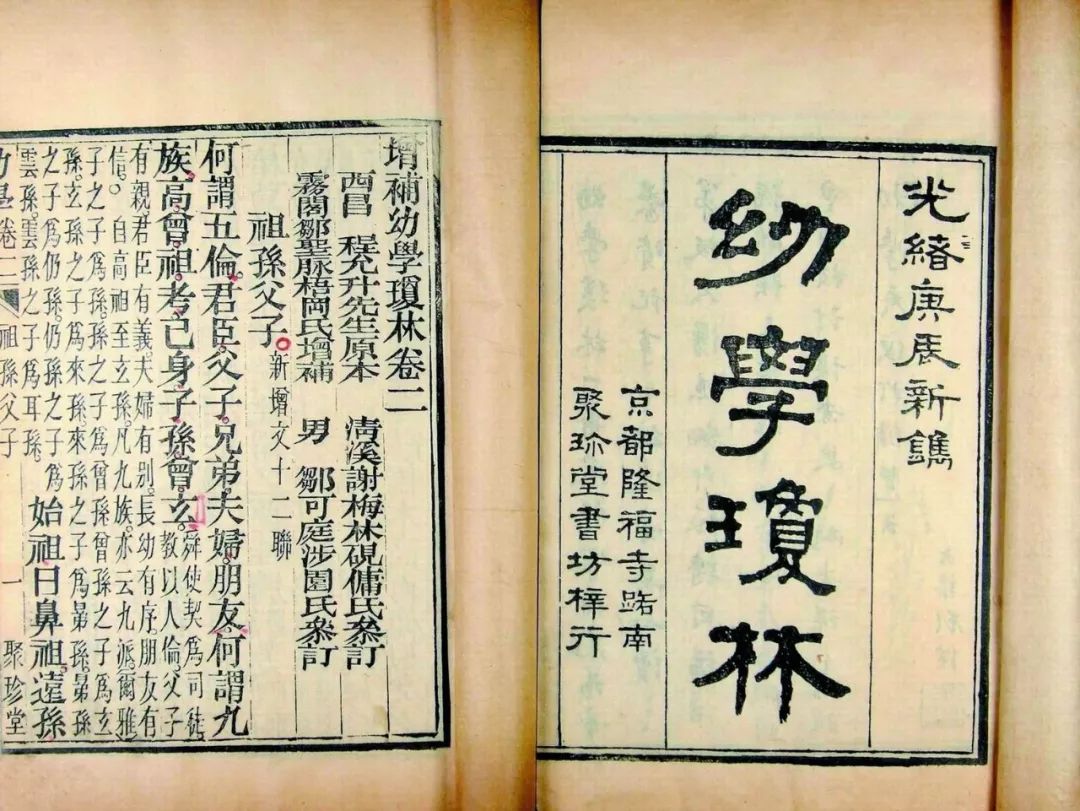 光緒庚辰新鐫
幼學瓊林
京都隆福寺路南
聚珍堂書坊梓行
增補幼學瓊林卷二
西昌 程允升先生原本 清溪謝梅林硯傭氏參訂
霧閣鄒聖脉梧岡氏增補 男 鄒可庭涉園氏參訂
祖孫父子。新增文十二聯
何謂五倫。君臣。父子。兄弟。夫婦。朋友。何謂九
族。高。曾。祖。考。己身。子。孫。曾。玄。
舜使契爲司徒。
教以人倫。父子
有親。君臣有義。夫婦有別。長幼有序。朋友有
信。自高祖至玄孫。凡九族。亦云九派。爾雅
子之子爲孫孫之子爲曾孫曾孫之子爲玄
孫。玄孫之子爲來孫來孫之子爲晜孫晜孫
之子爲仍孫。仍孫之子爲
雲孫。雲孫之子爲耳孫。
始祖曰鼻祖。遠孫
卷二 祖孫父子 一 聚珍堂